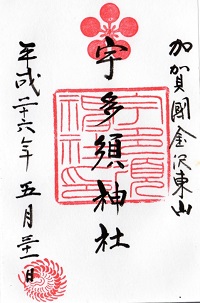 加賀國金沢東山
宇多須神社
平成二十六年五月三十一日